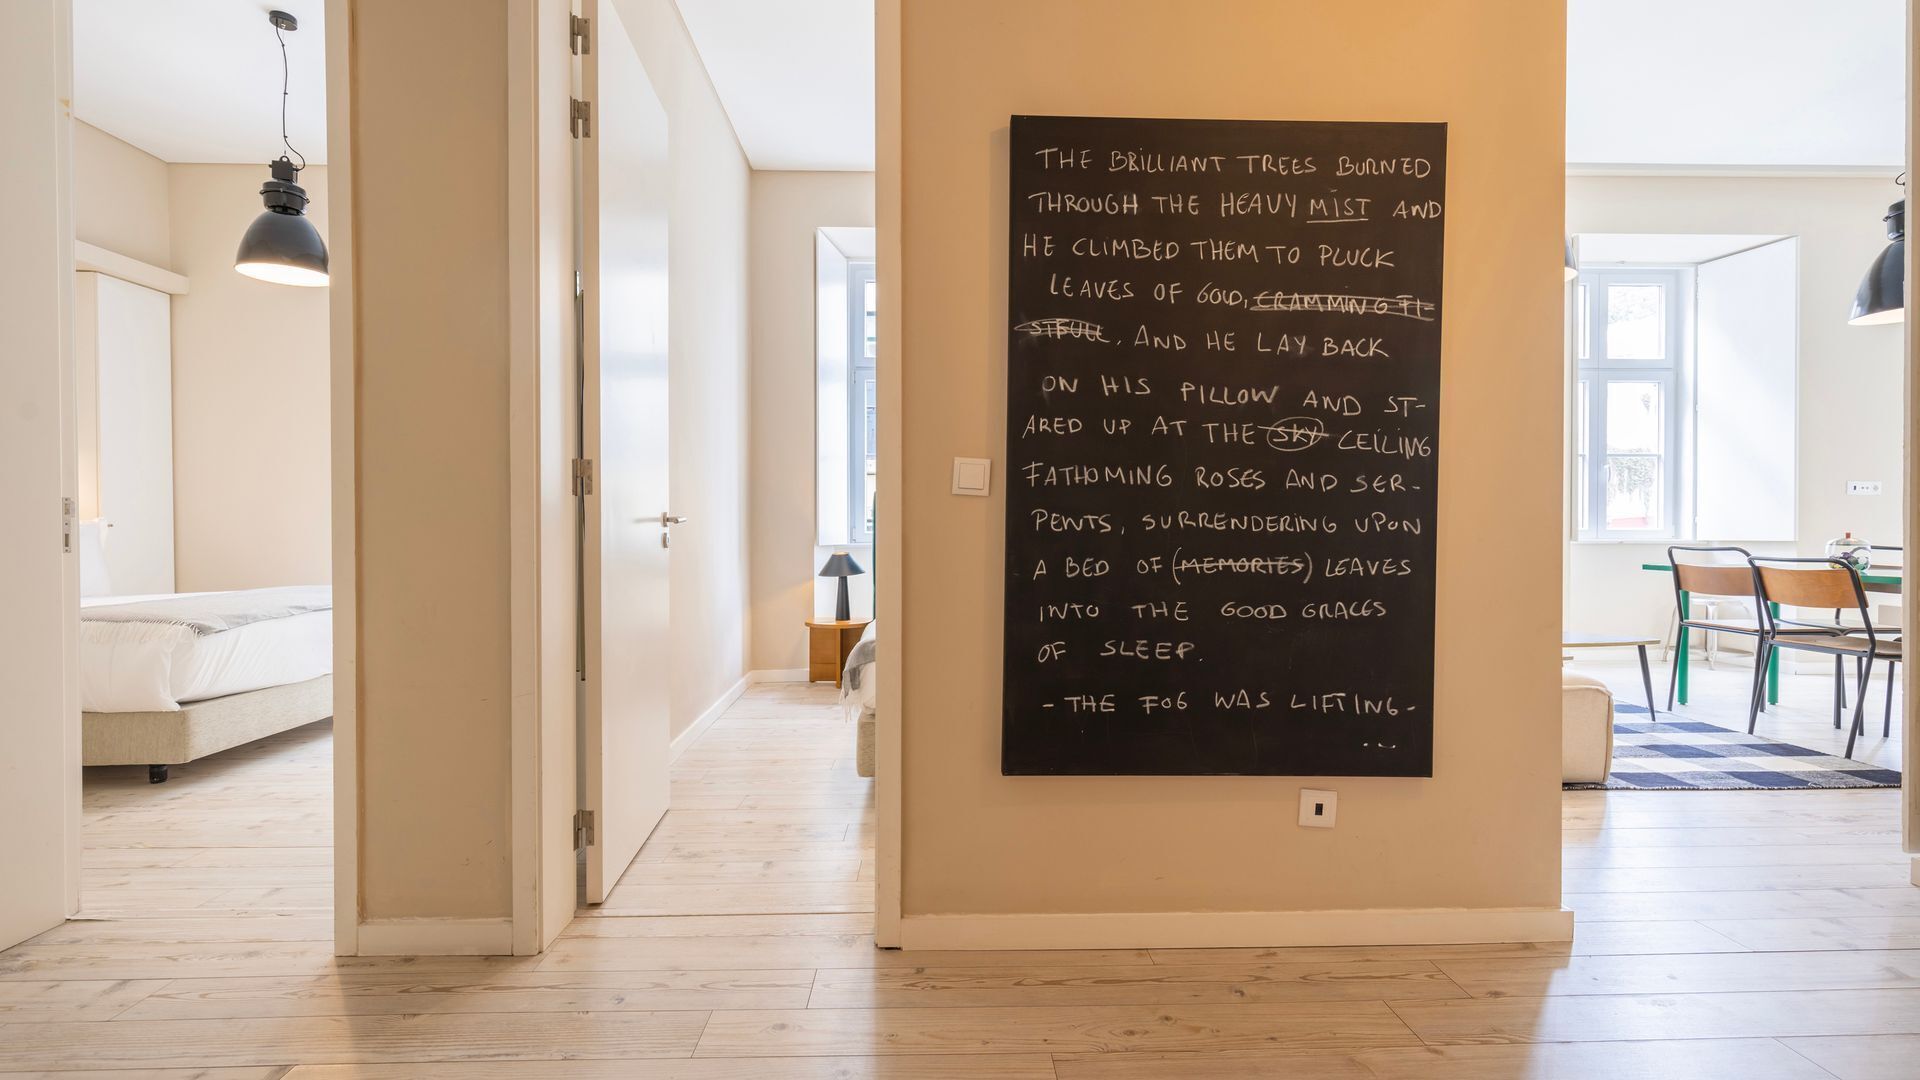 THE BRILLIANT TREES BURNED
THROUGH THE HEAVY MIST AND
HE CLIMBED THEM TO PLUCK
LEAVES OF GOLD, CRAMMING FI-
STFULL, AND HE LAY BACK
ON HIS PILLOW AND ST-
ARED UP AT THE SKY CEILING
FATHOMING ROSES AND SER-
PENTS, SURRENDERING UPON
A BED OF (MEMORIES) LEAVES
INTO THE GOOD GRACES
OF SLEEP.
- THE FOG WAS LIFTING -